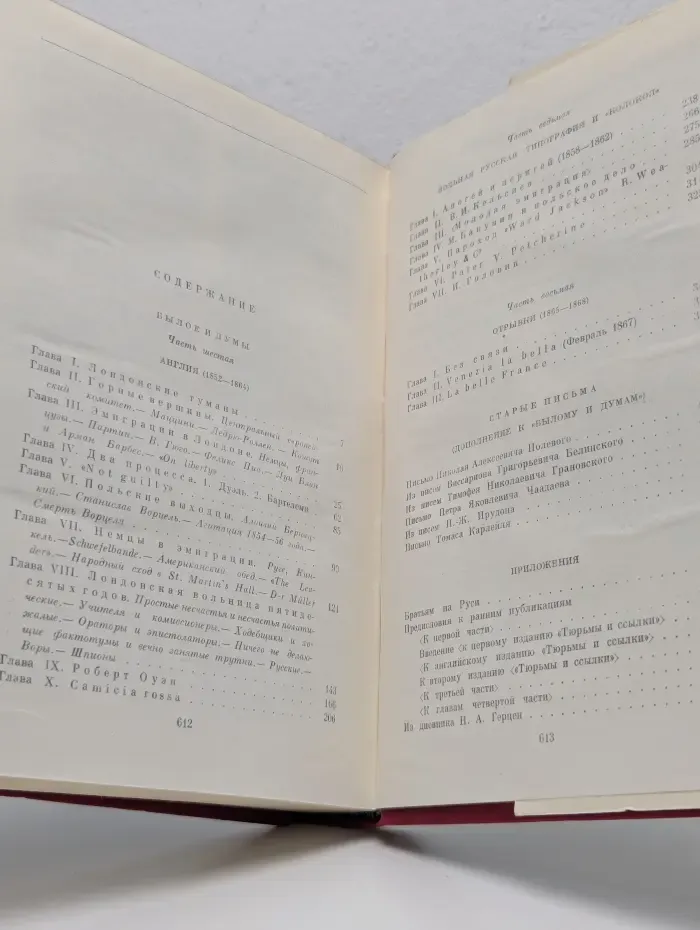 СОДЕРЖАНИЕ
БЫЛОЕ И ДУМЫ
Часть шестая
АНГЛИЯ (1852—1864)
Глава I. Лондонские туманы 7
Глава II. Горные вершины. Центральный европей-
ский комитет.— Маццини.— Ледрю-Роллен.— Кошут 16
Глава III. Эмиграции в Лондоне. Немцы, фран-
цузы.— Партии.— В. Гюго.— Феликс Пиа.— Луи Блан
и Арман Барбес.— «On liberty» 25
Глава IV. Два процесса. 1. Дуэль. 2. Бартелеми 62
Глава V. «Not guilty» 85
Глава VI. Польские выходцы. Алоизий Бернац-
кий.— Станислав Ворцель.— Агитация 1854—56 года.—
Смерть Ворцеля 95
Глава VII. Немцы в эмиграции. Руге, Кин-
кель.— Schwefelbande.— Американский обед.— «The Lea-
der».— Народный сход в St. Martin's Hall.— D-r Müller 121
Глава VIII. Лондонская вольница пятиде-
сятых годов. Простые несчастья и несчастья полити-
ческие.— Учителя и комиссионеры.— Ходебщики и хо-
жалые.— Ораторы и эпистолаторы.— Ничего не делаю-
щие фактотумы и вечно занятые трутни.— Русские.—
Воры.— Шпионы 143
Глава IX. Роберт Оуэн 166
Глава X. Camicia rossa 206
612
Часть седьмая
ВОЛЬНАЯ РУССКАЯ ТИПОГРАФИЯ И «КОЛОКОЛ»
Глава I. Апогей и перигей (1858—1862) 238
Глава II. В. И. Кельсиев 266
Глава III. «Молодая эмиграция» 275
Глава IV. М. Бакунин и польское дело 285
Глава V. Пароход «Ward Jackson» R. Wea-
therley & C°
Глава VI. Pater V. Petcherine
Глава VII. И. Головин
Часть восьмая
ОТРЫВКИ (1865—1868)
Глава I. Без связи
Глава II. Venezia la bella (Февраль 1867)
Глава III. La belle France
СТАРЫЕ ПИСЬМА
(ДОПОЛНЕНИЕ К «БЫЛОМУ И ДУМАМ»)
Письмо Николая Алексеевича Полевого
Из писем Виссариона Григорьевича Белинского
Из писем Тимофея Николаевича Грановского
Письмо Петра Яковлевича Чаадаева
Из писем П.-Ж. Прудона
Письмо Томаса Карлейля
ПРИЛОЖЕНИЯ
Братьям на Руси
Предисловия к ранним публикациям
〈К первой части〉
Введение 〈к первому изданию «Тюрьмы и ссылки»〉
〈К английскому изданию «Тюрьмы и ссылки»〉
К второму изданию 〈«Тюрьмы и ссылки»〉
〈К третьей части〉
〈К главам четвертой части〉
Из дневника Н. А. Герцен
613